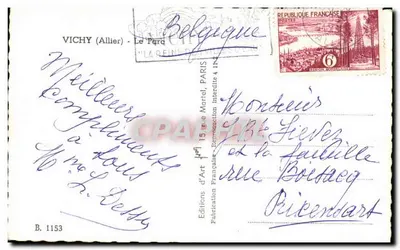 VICHY (Allier) - Le Parc
Belgique
REPUBLIQUE FRANÇAISE
6F
Meilleurs
compliments
à tous
Mme L.
Editions d'Art 15, rue Martel, PARIS
Fabrication Française - Reproduction interdite
Monsieur
et la famille
rue Boisacq
Rixensart
B. 1153
CARTE-PRECIEUSE.COM